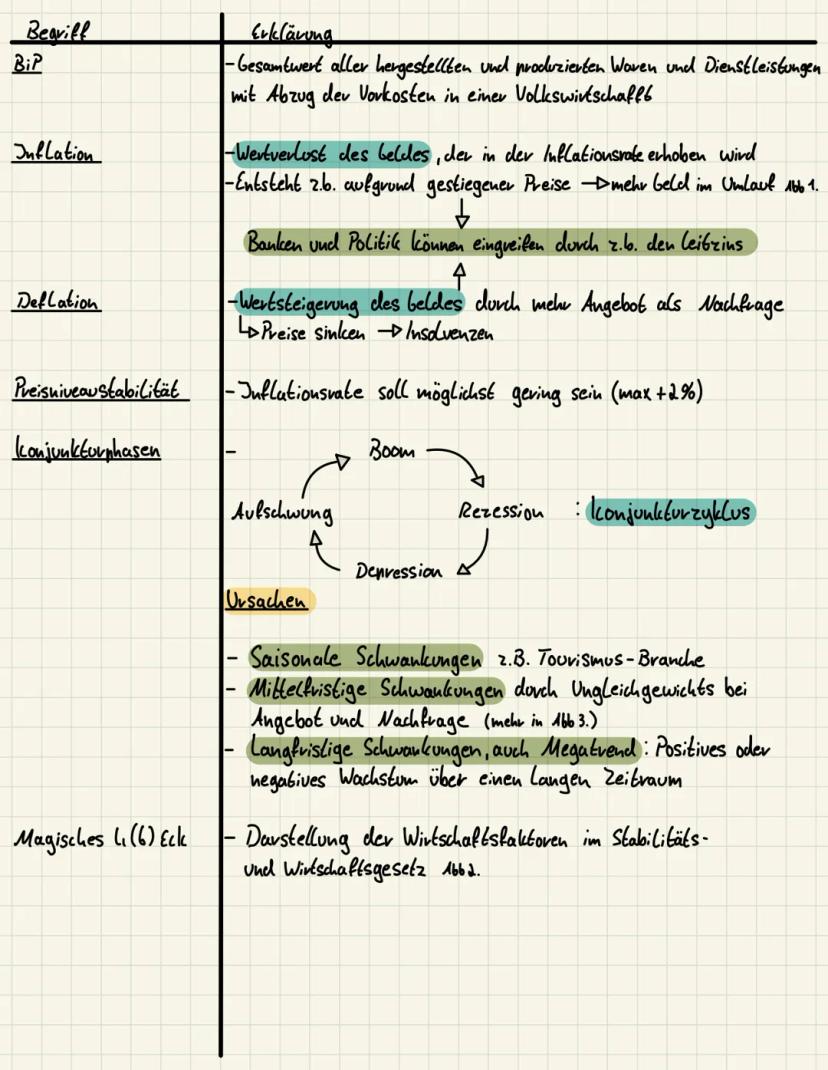 Begriff Erklärung
BiP - Gesamtwert aller hergestellten und produzierten Waren und Dienstleistungen
mit Abzug der Vorkosten in einer Volkswirtschafft
Inflation - Wertverlust des Geldes, der in der Inflationsrate erhoben wird
- Entsteht z.b. aufgrund gestiegener Preise → mehr Geld im Umlauf Abb 1.
↓
Banken und Politik können eingreifen durch z.b. den Leitzins
↑
Deflation - Wertsteigerung des Geldes durch mehr Angebot als Nachfrage
↳ Preise sinken → Insolvenzen
Preisniveaustabilität - Inflationsrate soll möglichst gering sein (max +2%)
Konjunkturphasen -
Boom
Aufschwung Rezession : Konjunkturzyklus
Depression
Ursachen
- Saisonale Schwankungen z.B. Tourismus-Branche
- Mittelfristige Schwankungen durch Ungleichgewichts bei
Angebot und Nachfrage (mehr in Abb 3.)
- Langfristige Schwankungen, auch Megatrend: Positives oder
negatives Wachstum über einen langen Zeitraum
Magisches 4(6) Eck - Darstellung der Wirtschaftsfaktoren im Stabilitäts-
und Wirtschaftsgesetz Abb 2.